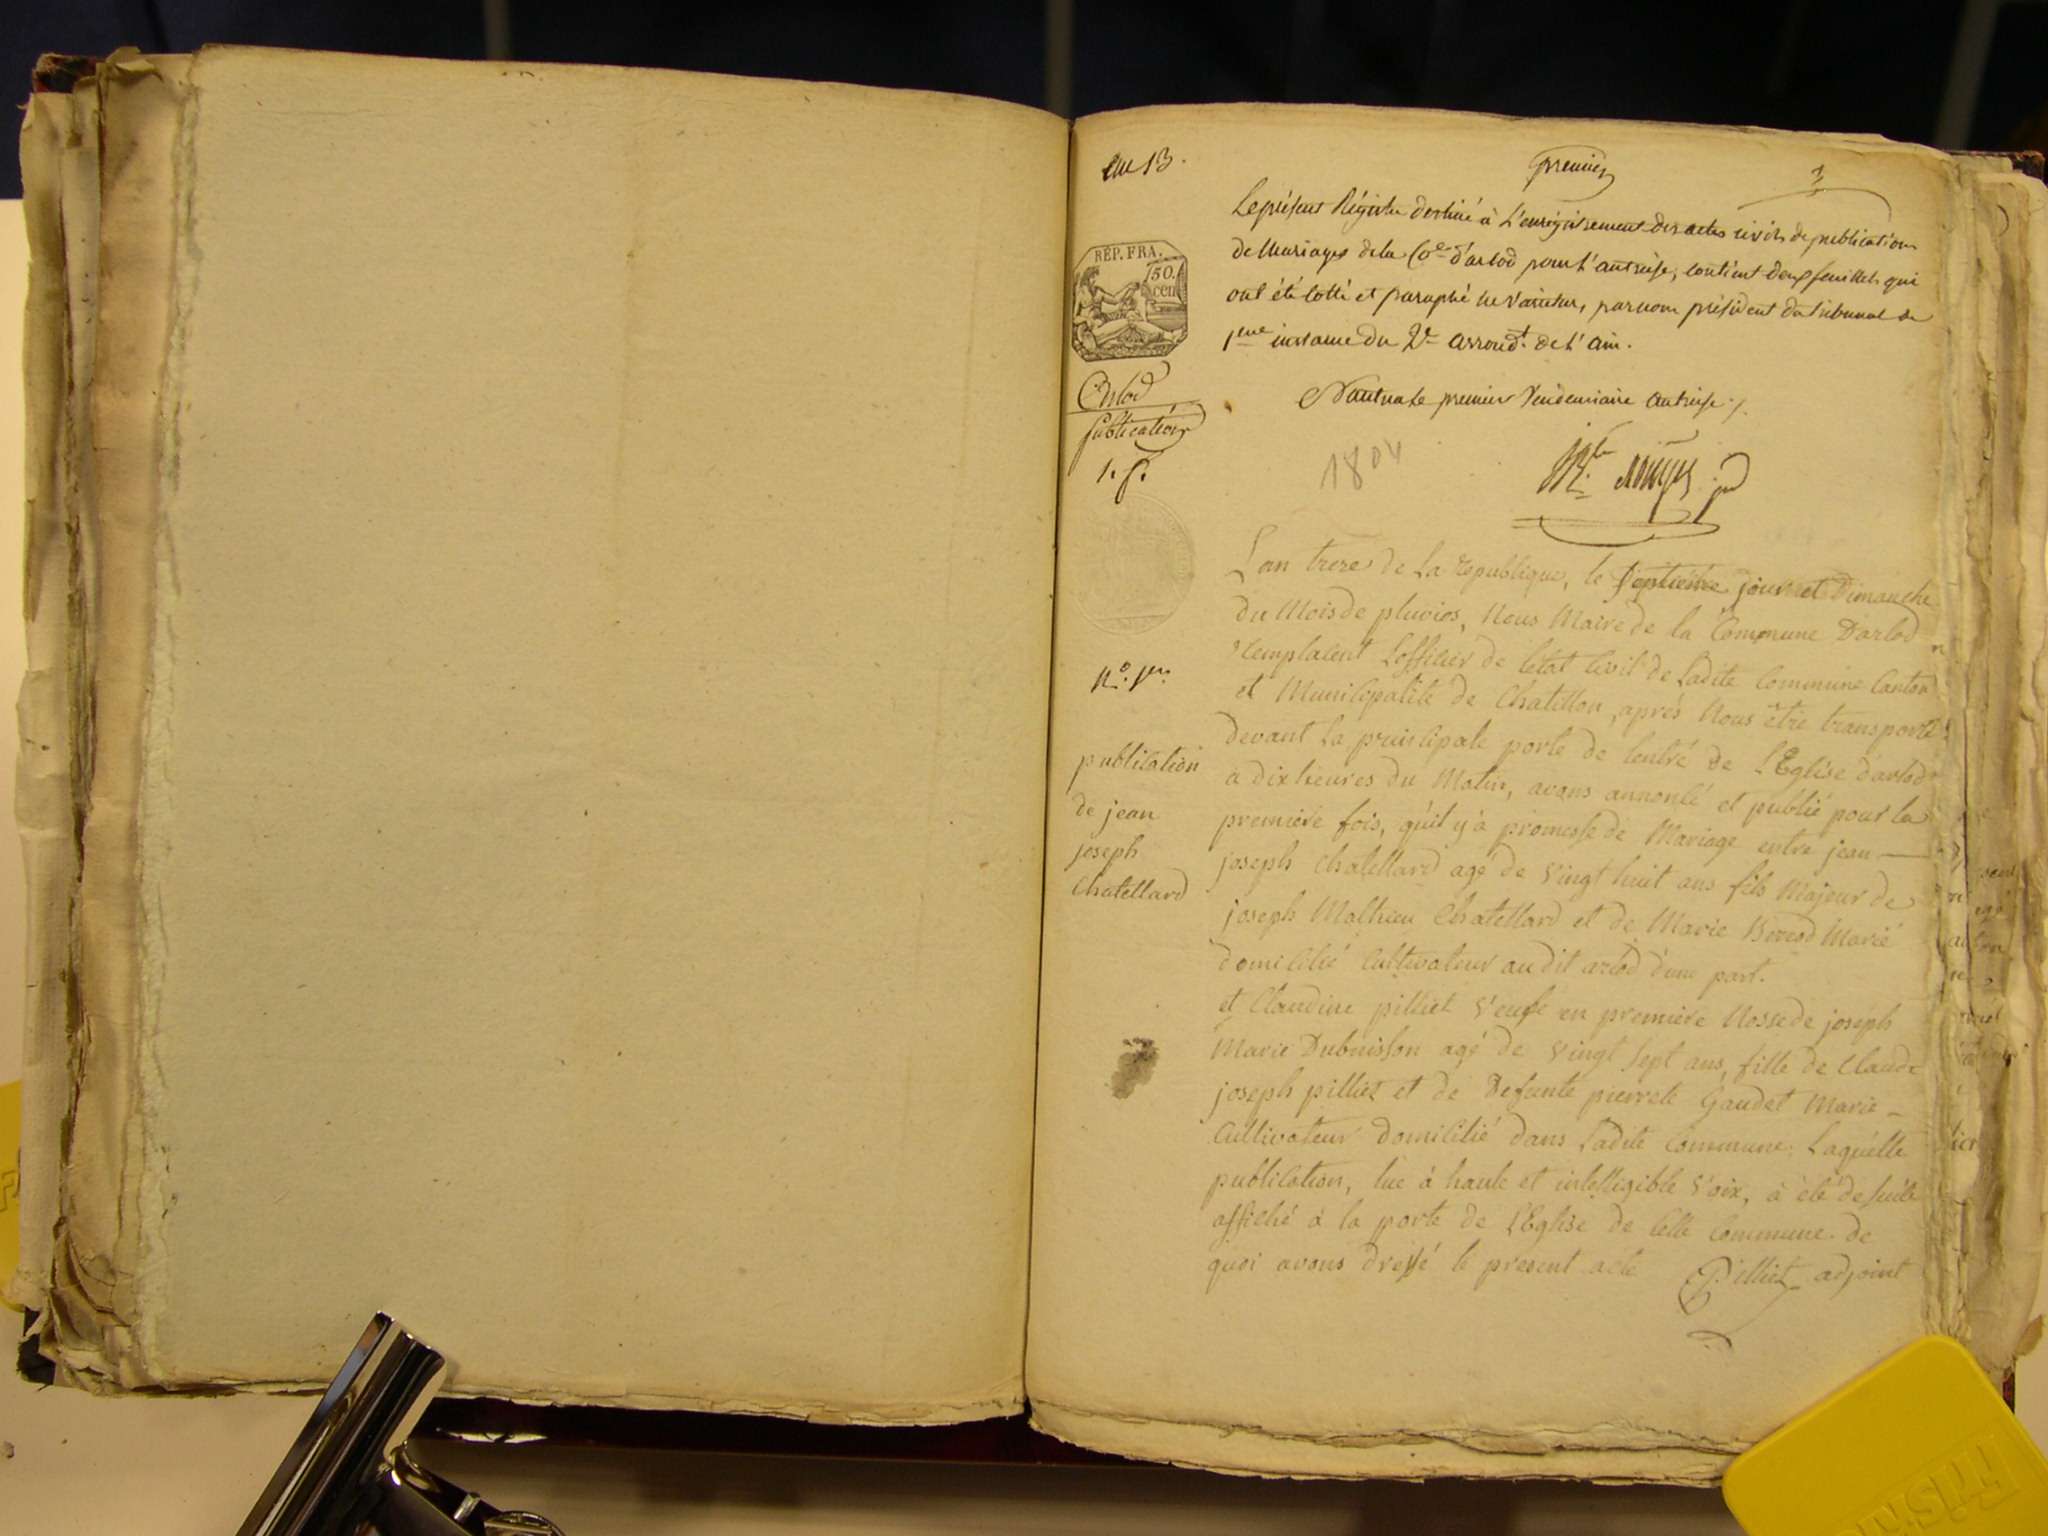 an 13.
premier
1
Le présent Régistre destiné à L'enrégistrement des actes civils de publication
de Mariages de la Coe. d'arlod pour L'an treise, contient deux feuillets qui
ont été cotté et paraphé ne varietur, par nous président du tribunal de
1ere instance du 2e arrondt. de L'ain.
Nantua Le premier Vendemiaire an treise ./.
RÉP. FRA.
50.
cen
Arlod
publications
1. f.
1804
L'an treze de La republique, le septième jour et Dimanche
du Mois de pluvios, Nous Maire de la Commune D'arlod
remplacent Lofficier de letat Civil de Ladite Commune Canton
et Municipalité de Chatillon, aprés Nous être transporté
devant La principale porte de lentré de L'Eglise d'arlod
a dix heures du Matin, avons annoncé et publié pour la
premiere fois, quil y'à promesse de Mariage entre jean —
joseph Chatellard agé de vingt huit ans fils Majeur de
joseph Mathieu Chatellard et de Marie Marié
domicilié Cultivateur au dit arlod d'une part.
et Claudine pilliet Veufe en premiere Nosse de joseph
Marie Dubuisson agé de vingt sept ans, fille de Claude
joseph pilliet et de Defunte pierrete Gaudet Marie –
Cultivateur domicilié dans Ladite Commune. Laquélle
publication, lue à haute et intelligible Voix, à été de suite
affiché à la porte de L'Eglise de Cette Commune. de
quoi avons dressé le present acte
Pilliet adjoint
No. 1er
publication
de jean
joseph
Chatellard